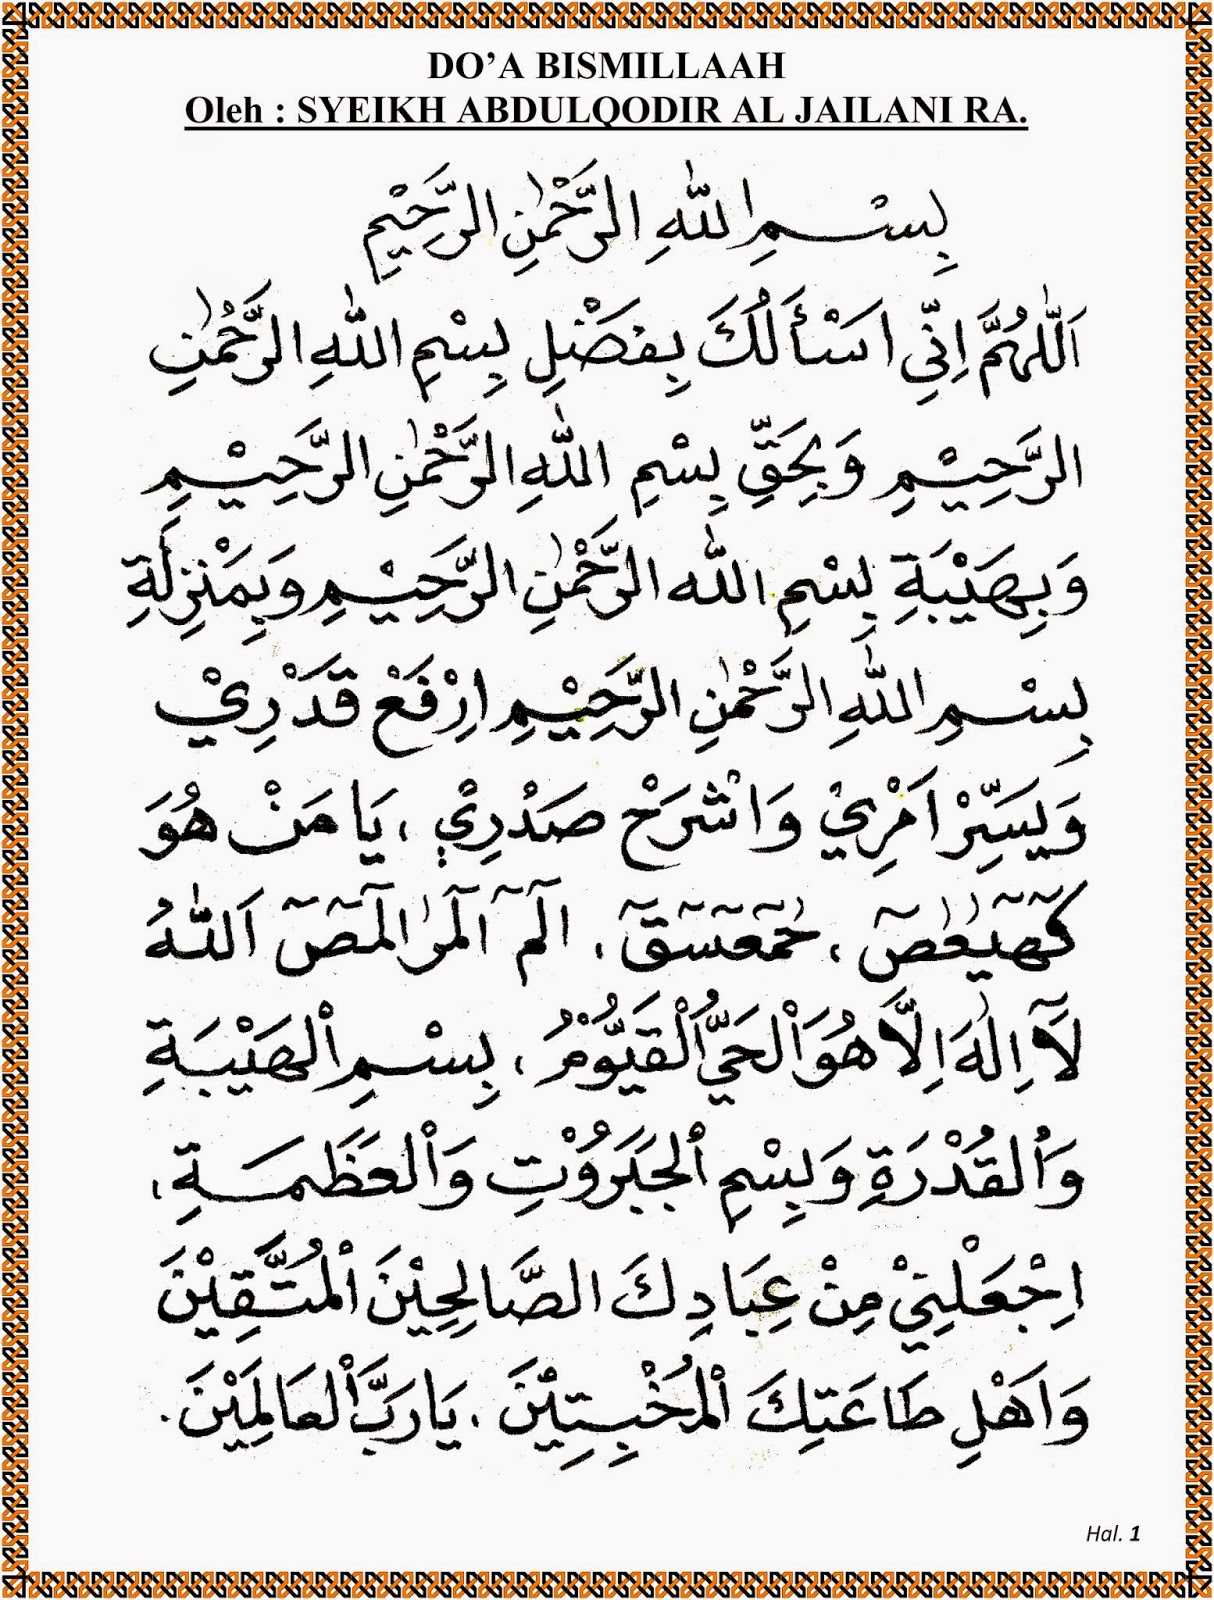 DO’A BISMILLAAH
Oleh : SYEIKH ABDULQODIR AL JAILANI RA.
بِسْمِ اللهِ الرَّحْمٰنِ الرَّحِيْمِ
اَللّٰهُمَّ اِنِّي اَسْأَلُكَ بِفَضْلِ بِسْمِ اللهِ الرَّحْمٰنِ
الرَّحِيْمِ وَبِحَقِّ بِسْمِ اللهِ الرَّحْمٰنِ الرَّحِيْمِ
وَبِهَيْبَةِ بِسْمِ الله الرَّحْمٰنِ الرَّحِيْمِ وَبِمَنْزِلَةِ
بِسْمِ اللهِ الرَّحْمٰنِ الرَّحِيْمِ ارْفَعْ قَدْرِيْ
وَيَسِّرْ اَمْرِيْ وَاشْرَحْ صَدْرِيْ ، يَا مَنْ هُوَ
كٓهٰيٰعٓصٓ ، حٰمٓعٓسٓقٓ ، الٓمٓ الٓمٓرٰ الٓمٓصٓ اَللّٰهُ
لَآ اِلٰهَ اِلَّا هُوَ الْحَيُّ الْقَيُّوْمُ ، بِسْمِ الْهَيْبَةِ
وَالْقُدْرَةِ وَبِسْمِ الْجَبَرُوْتِ وَالْعَظَمَةِ ،
اِجْعَلْنِيْ مِنْ عِبَادِكَ الصَّالِحِيْنَ الْمُتَّقِيْنَ
وَاَهْلِ طَاعَتِكَ الْمُخْبِتِيْنَ ، يَا رَبَّ الْعَالَمِيْنَ .
Hal. 1